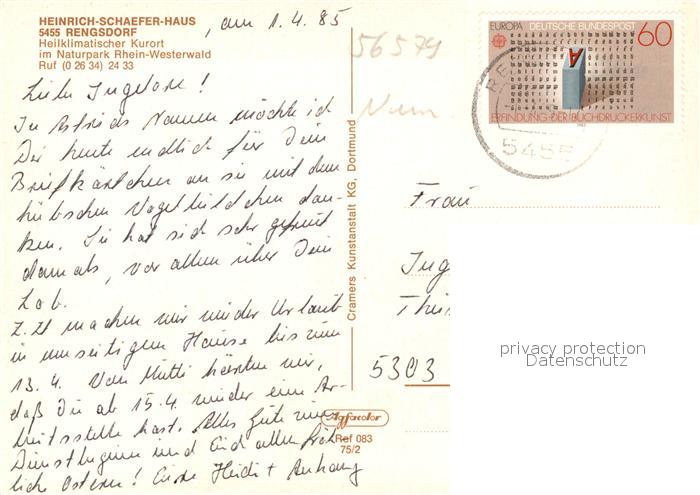 HEINRICH-SCHAEFER-HAUS
5455 RENGSDORF
Heilklimatischer Kurort
im Naturpark Rhein-Westerwald
Ruf (0 26 34) 24 33
, am 1.4.85
Liebe Ingelore!
In Astrids Namen möchte ich
Dir heute endlich für Dein
Briefkärtchen an sie mit dem
hübschen Vogelbildchen dan-
ken. Sie hat sich sehr gefreut
damals, vor allem über Dein
Lob.
Z. Zt machen wir wieder Urlaub
in umseitigem Hause bis zum
13. 4. Von Mutti hörten wir,
daß Du ab 15.4. wieder eine Ar-
beitsstelle hast. Alles Gute zum
Dienstbeginn und Euch allen fröh-
liche Ostern! Eure Heidi + Anhang
Cramers Kunstanstalt KG, Dortmund
56579
EUROPA DEUTSCHE BUNDESPOST 60
A
ERFINDUNG DER BUCHDRUCKERKUNST
1983
5455
Frau
Inge
5303
privacy protection
Datenschutz
Agfacolor
Ref 083
75/2